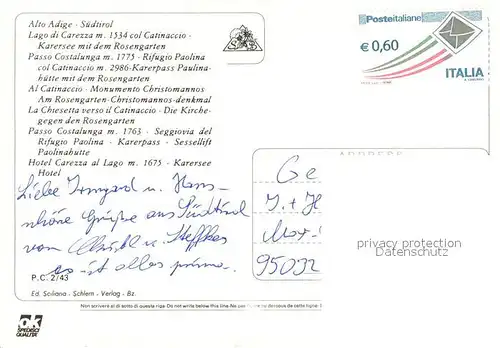 Alto Adige - Südtirol
Lago di Carezza m. 1534 col Catinaccio -
Karersee mit dem Rosengarten
Passo Costalunga m. 1775 - Rifugio Paolina
col Catinaccio m. 2986-Karerpass Paulina-
hütte mit dem Rosengarten
Al Catinaccio - Monumento Christomannos
Am Rosengarten-Christomannos-denkmal
La Chiesetta verso il Catinaccio - Die Kirche
gegen den Rosengarten
Passo Costalunga m. 1763 - Seggiovia del
Rifugio Paolina - Karerpass - Sessellift
Paolinahütte
Hotel Carezza al Lago m. 1675 - Karersee
Hotel
Liebe Irmgard u. Hans
schöne Grüße aus Südtirol
von Christl u. Steffkes
es ist alles prima.
P.C. 2/43
Ed. Sciliano - Schlern - Verlag - Bz.
Posteitaliane
€ 0,60
ITALIA
Ge
I. + H
Max-
95032
privacy protection
Datenschutz
Non scrivere al di sotto di questa riga Do not write below this line
ok
SPEDISCI
QUALITÀ